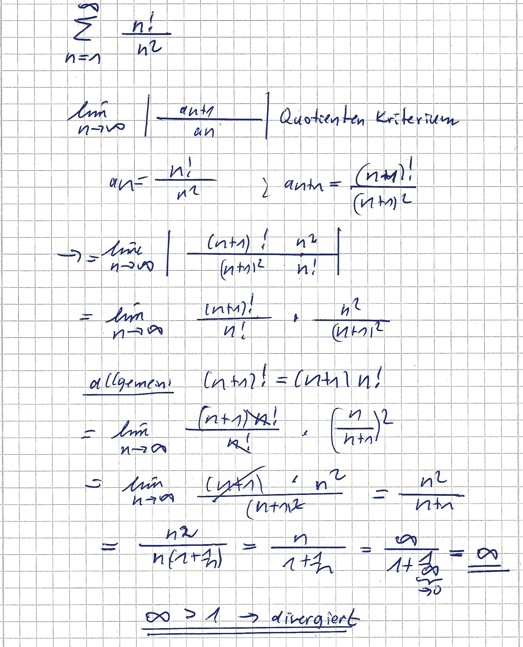 ∞
Σ n!/n²
n=1
lim n→∞ | an+1/an | Quotienten Kriterium
an = n!/n² ; an+1 = (n+1)!/(n+1)²
→ = lim n→∞ | (n+1)! n² / (n+1)² n! |
= lim n→∞ (n+1)!/n! · n²/(n+1)²
allgemein: (n+1)! = (n+1) n!
= lim n→∞ (n+1)n!/n! · (n/n+1)²
= lim n→∞ (n+1) · n²/(n+1)² = n²/n+1
= n²/n(1+1/n) = n/1+1/n = ∞/1+1/∞ = ∞
→0
∞ > 1 → divergiert